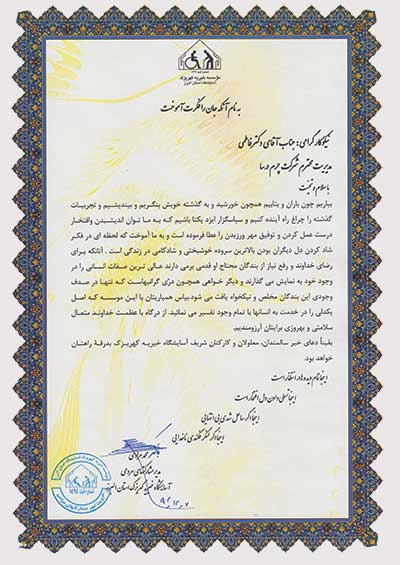 موسسه خیریه کهریزک
آسایشگاه استان البرز
به نام آنکه جان را فکرت آموخت
نیکوکار گرامی؛ جناب آقای دکتر فاطمی
مدیریت محترم شرکت چرم درسا
با سلام و تحیت
بباریم چون باران و بتابیم همچون خورشید و به گذشته خویش بنگریم و بیندیشیم و تجربیات
گذشته را چراغ راه آینده کنیم و سپاسگزار ایزد یکتا باشیم که به ما توان اندیشیدن وافتخار
درست عمل کردن و توفیق مهر ورزیدن را عطا فرموده است و به ما آموخت که لحظه ای در فکر
شاد کردن دل دیگران بودن بالاترین سروده خوشبختی و شادکامی در زندگی است . آنانکه برای
رضای خداوند و رفع نیاز از بندگان محتاج او قدمی برمی دارند عالی ترین صفات انسانی را در
وجود خود به نمایش می گذارند و دیگر خواهی همچون دری گرانبهاست که تنها در صدف
وجودی این بندگان مخلص و نیکخواه یافت می شود.بپاس همیاریتان با این موسسه که اصل
یکدلی را در خدمت به انسانها با تمام وجود تفسیر می نمائید. از درگاه با عظمت خداوند متعال
سلامتی و بهروزی برایتان آرزومندیم.
یقیناً دعای خیر سالمندان، معلولان و کارکنان شریف آسایشگاه خیریه کهریزک بدرقه راهتان
خواهد بود.
اینجا تمام دیده ها در انتظار است
اینجا تسلی دادن دل افتخار است
اینجا دگر ساحل شدی بی انتهایی
اینجا دگر لنگر فکندی ناخدایی
مدیر مشارکتهای مردمی
آسایشگاه خیریه کهریزک استان البرز